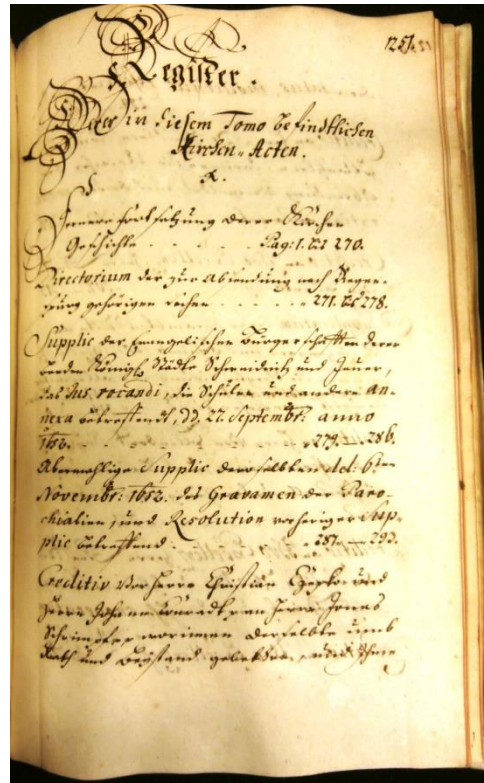 1251.
Register.
Derer in diesem Tomo befindlichen
Kirchen-Acten.
Fernere fortsetzung derer Kirchen
Geschichte - - - - - Pag: 1. bis 270.
Directorium der zur Absendung nach Regen-
spurg gehörigen - - - - 271. bis 278.
Supplic der Evangelischen Bürgerschafften derer
beeden Königl. Städte Schweidnitz und Jauer,
das Jus vocandi, die Schulen und andere an-
nexa betreffendt, dd. 27. Septembr: anno
1652. - - - - 279. — 286.
Abermahlige Supplic deroselbten dd. 6ten
Novembr: 1652. das Gravamen der Paro-
chialien, und Resolution voriger Sup-
plic betreffend. - - - 287. — 293.
Creditiv vor Herrn Christian Czepko und
Herrn Johann Conradt, an Herrn Jonas
Schrimpffer, worinnen derselbte umb
Rath und Beystand gebethen, und Ihme